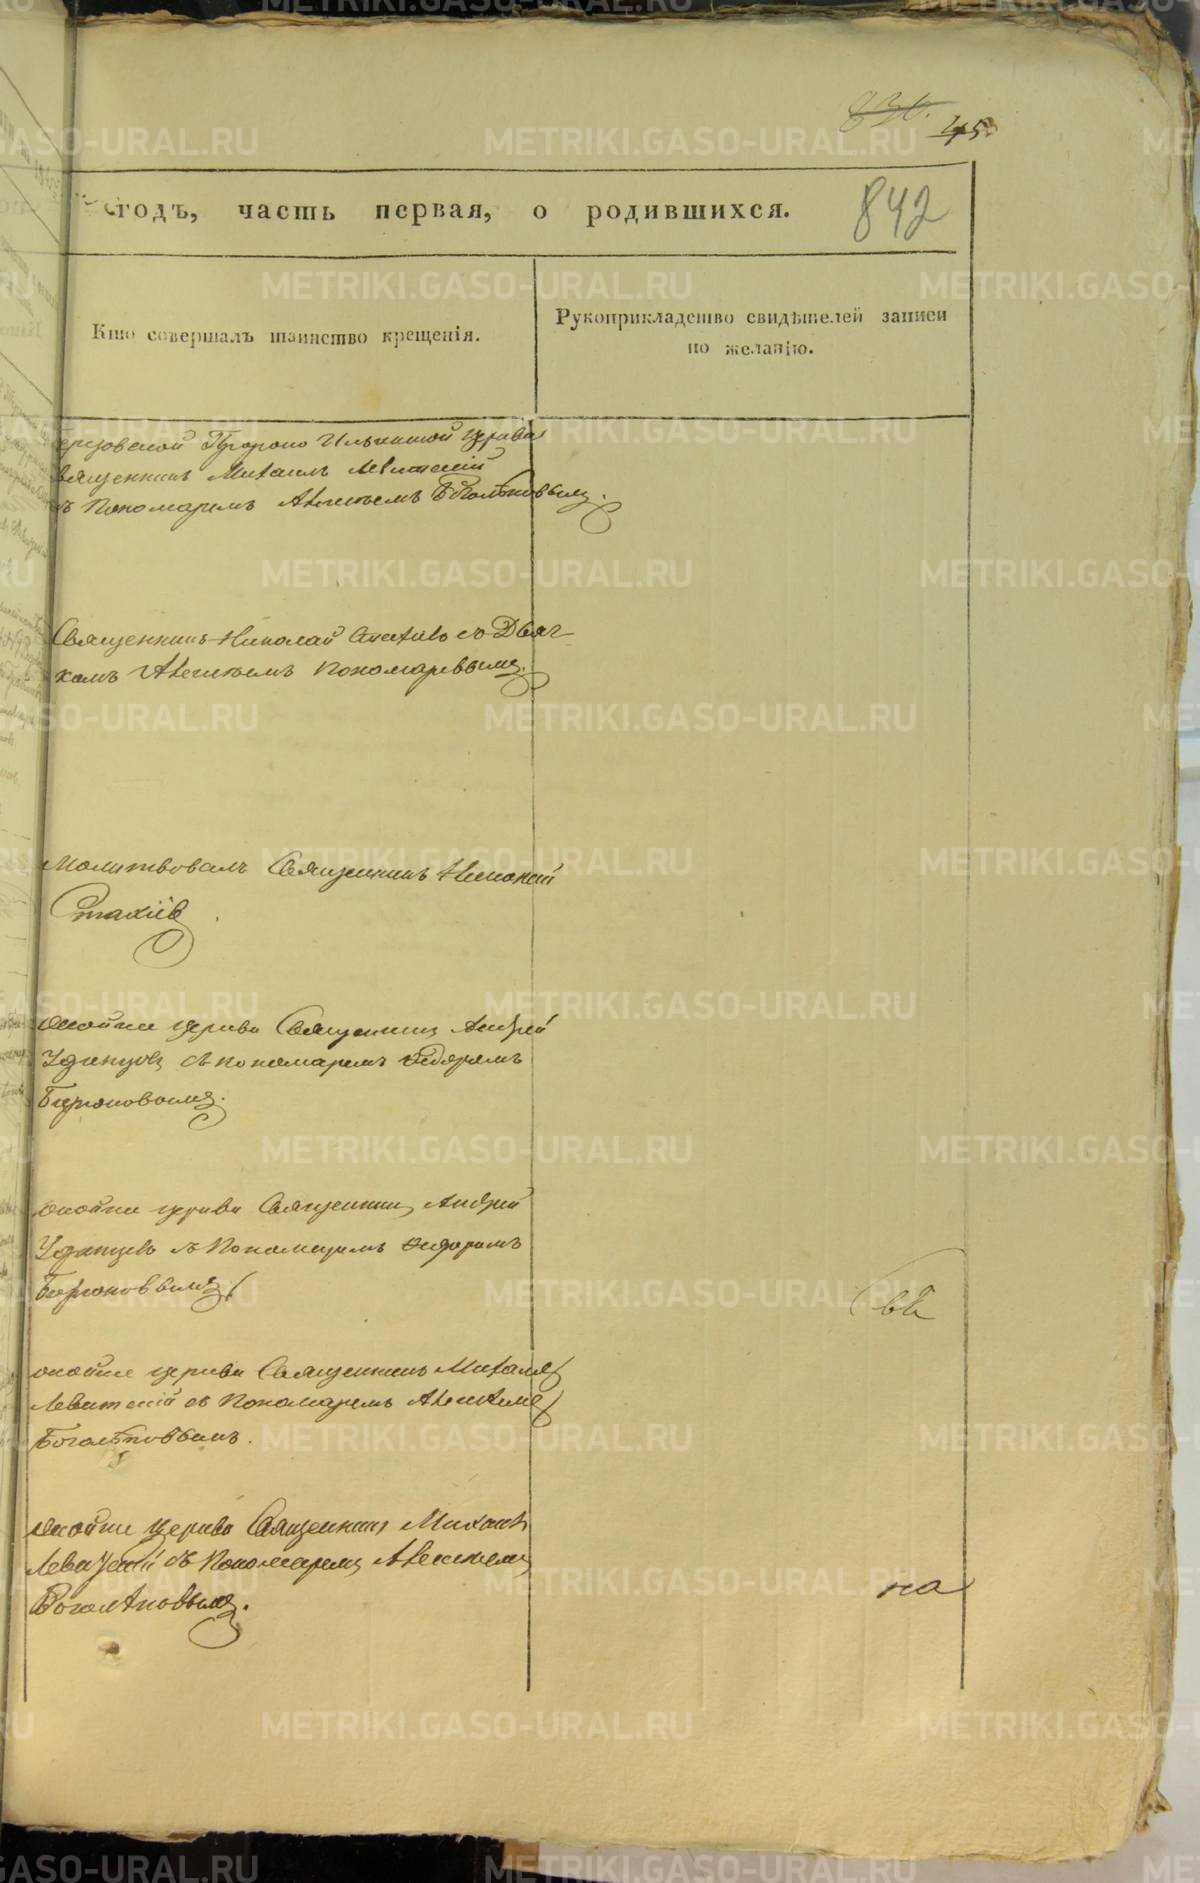 830. 45.
годъ, часть первая, о родившихся. 842
Кто совершалъ таинство крещенія.
Рукоприкладство свидѣтелей записи
по желанію.
Пророко Ильинской церкви
священникъ Михаилъ Левитскій
съ Пономаремъ Алексѣемъ Боголѣповымъ.
Священникъ Николай Стахіевъ съ Дьяч-
комъ Алексѣемъ Пономаревымъ.
Молитвовалъ Священникъ Николай
Стахіевъ
оной же церкви Священникъ Андрей
Удинцовъ съ пономаремъ Ѳедоромъ
Бирюковымъ.
оной же церкви Священникъ Андрей
Удинцевъ съ Пономаремъ Ѳедоромъ
Бирюковымъ
оной же церкви Священникъ Михаилъ
Левитскій съ Пономаремъ Алексѣемъ
Боголѣповымъ.
оной же церкви Священникъ Михаилъ
Левитскій съ Пономаремъ Алексѣемъ
Боголѣповымъ.
на
METRIKI.GASO-URAL.RU